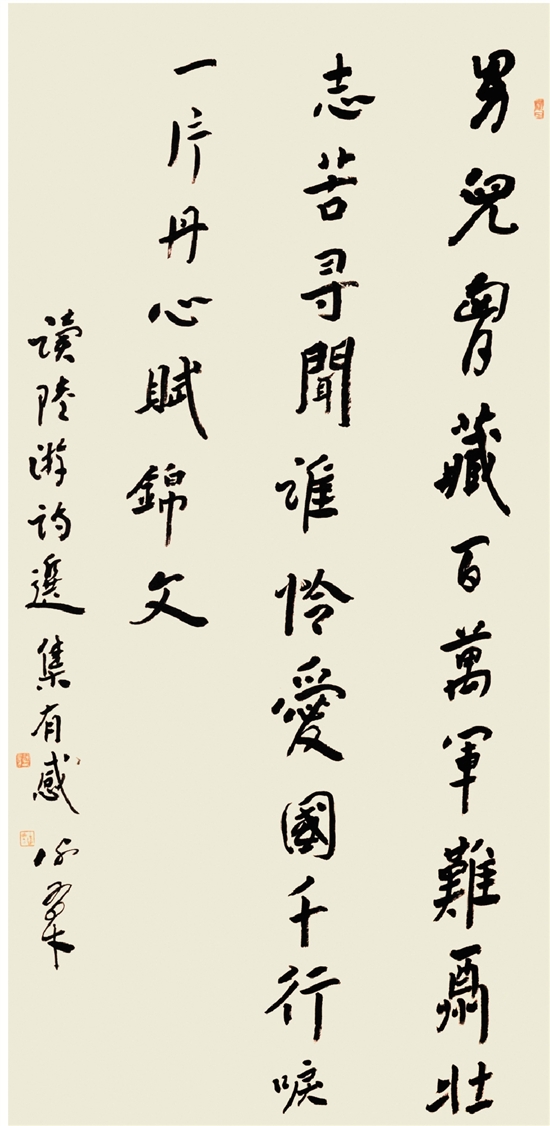 男兒胷藏百萬軍難酬壯
志苦尋聞誰怜愛國千行淚
一片丹心賦錦文
讀陸游詩選集有感